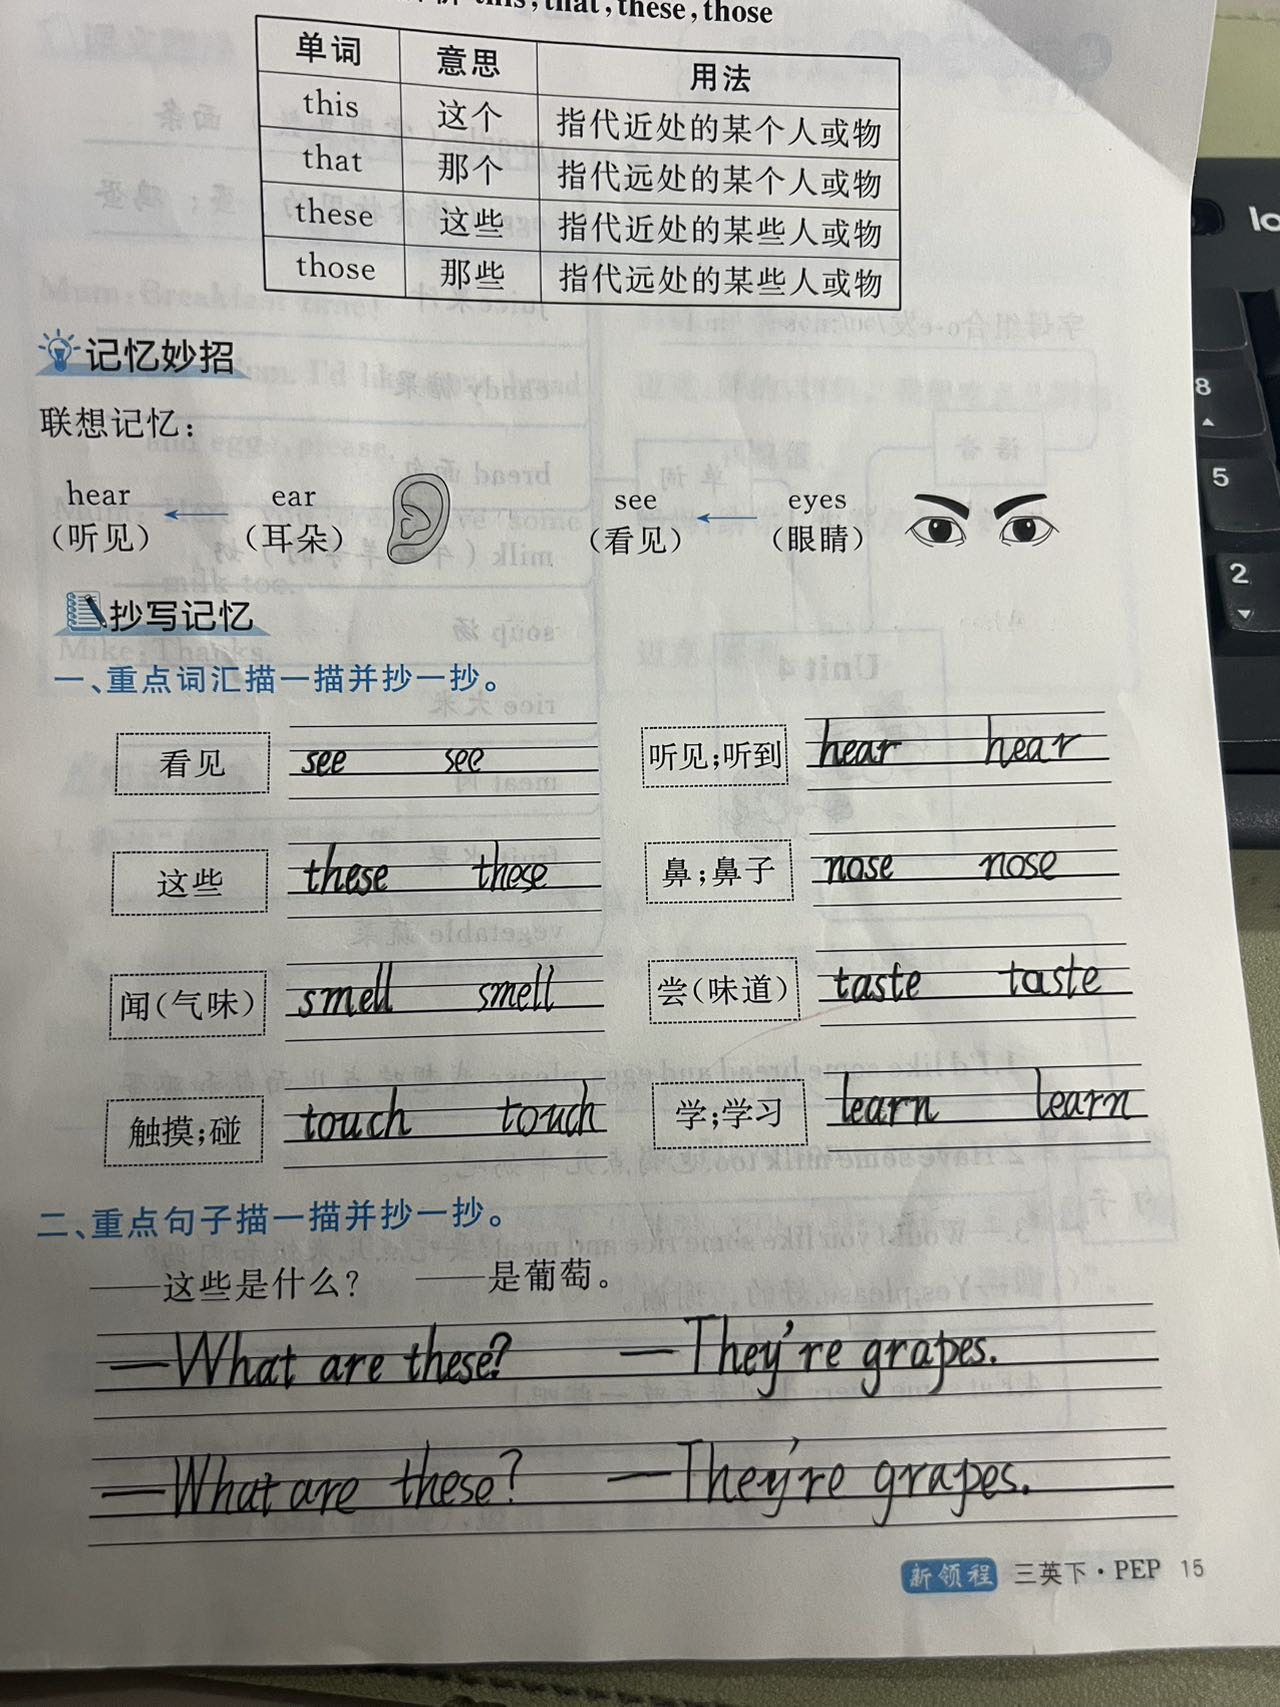 this, that, these, those
单词 意思 用法
this 这个 指代近处的某个人或物
that 那个 指代远处的某个人或物
these 这些 指代近处的某些人或物
those 那些 指代远处的某些人或物
记忆妙招
联想记忆：
hear ear see eyes
（听见） （耳朵） （看见） （眼睛）
抄写记忆
一、重点词汇描一描并抄一抄。
看见 see see 听见；听到 hear hear
这些 these these 鼻；鼻子 nose nose
闻（气味） smell smell 尝（味道） taste taste
触摸；碰 touch touch 学；学习 learn learn
二、重点句子描一描并抄一抄。
——这些是什么？ ——是葡萄。
—What are these? —They're grapes.
—What are these? —They're grapes.
新领程 三英下·PEP 15
8
5
2